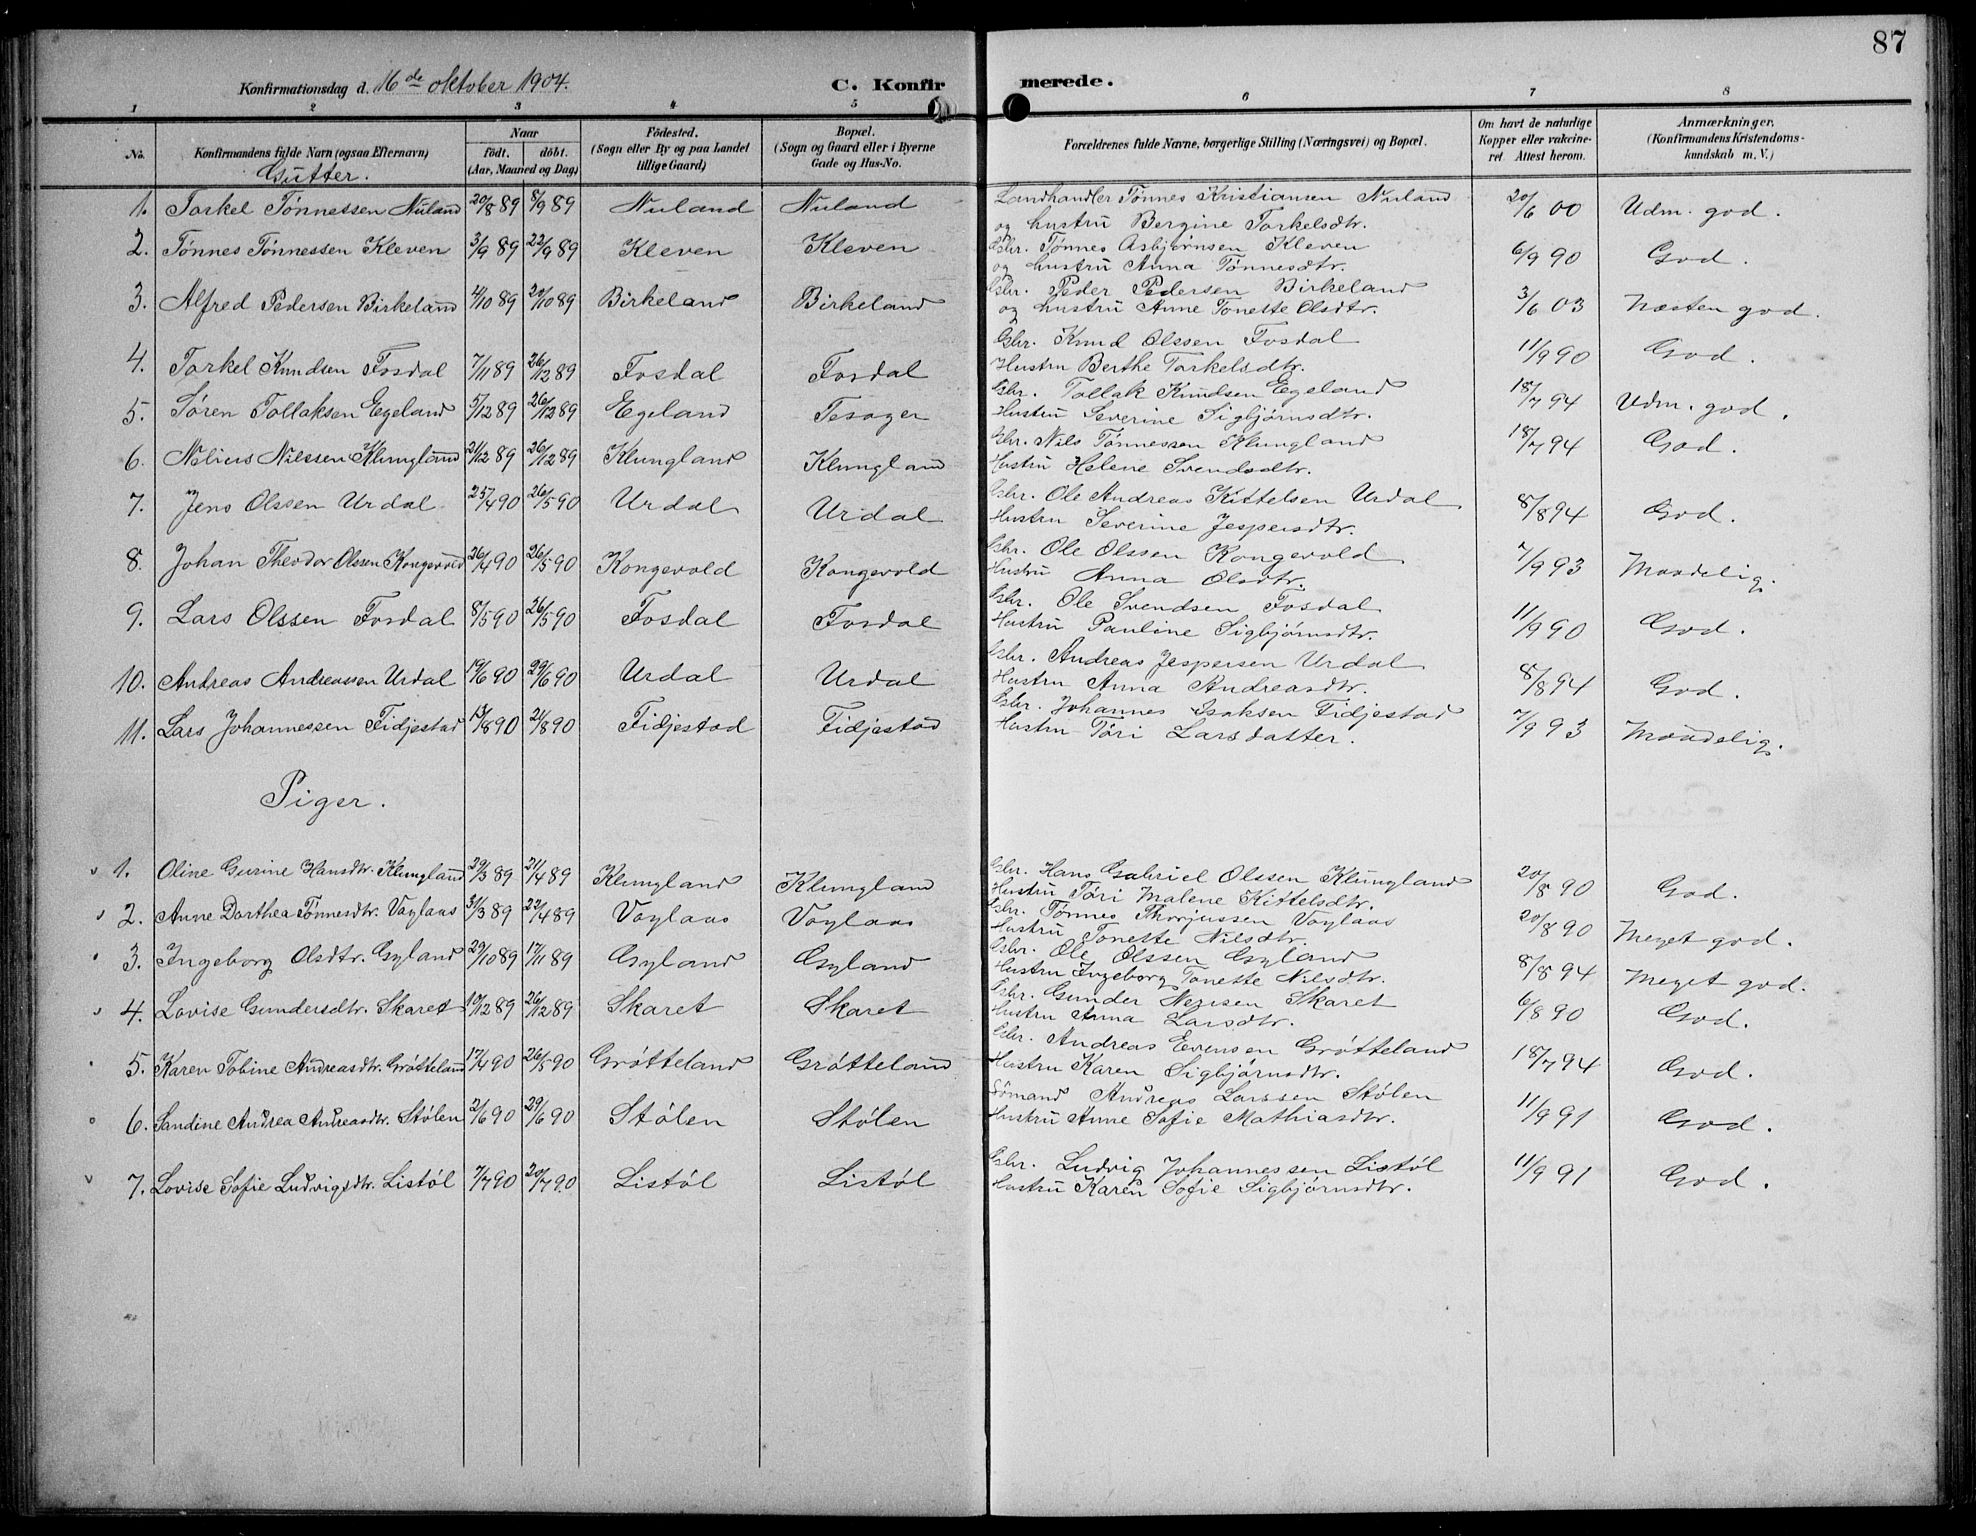 87
Konfirmationsdag d. 16de oktober 1904. C. Konfirmerede.
1 2 3 4 5 6 7 8
No. Konfirmandens fulde Navn (ogsaa Efternavn) Naar födt. döbt. (Aar, Maaned og Dag) Födested. (Sogn eller By og paa Landet tillige Gaard) Bopæl. (Sogn og Gaard eller i Byerne Gade og Hus-No. Forældrenes fulde Navne, borgerlige Stilling (Næringsvei) og Bopæl. Om havt de naturlige Kopper eller vakcineret. Attest herom. Anmærkninger. (Konfirmandens Kristendomskundskab m. V.)
Gutter.
1. Torkel Tønnessen Nuland 20/8 89 8/9 89 Nuland Nuland Landhandler Tønnes Kristiansen Nuland 20/6 00 Udm. god.
og hustru Bergine Torkelsdtr.
2. Tønnes Tønnessen Kleven 3/9 89 22/9 89 Kleven Kleven Gbr. Tønnes Asbjørnsen Kleven 6/9 90 God.
og hustru Anna Tønnesdtr.
3. Alfred Pedersen Birkeland 4/10 89 20/10 89 Birkeland Birkeland Gbr. Peder Pedersen Birkeland 3/6 03 Næsten god.
og hustru Anne Tonette Olsdtr.
4. Torkel Knudsen Fosdal 7/11 89 26/12 89 Fosdal Fosdal Gbr. Knud Olssen Fosdal 11/9 90 God.
Hustru Berthe Torkelsdtr.
5. Søren Tollaksen Egeland 5/12 89 26/12 89 Egeland Tesager Gbr. Tollak Knudsen Egeland 18/7 94 Udm. god.
Hustru Severine Sigbjørnsdtr.
6. Nelius Nilssen Klungland 21/12 89 26/12 89 Klungland Klungland Gbr. Nils Tønnessen Klungland 18/7 94 God.
Hustru Helene Svendsdtr.
7. Jens Olssen Urdal 25/4 90 26/5 90 Urdal Urdal Gbr. Ole Andreas Kittelsen Urdal 8/8 94 God.
Hustru Severine Jespersdtr.
8. Johan Theodor Olssen Kongevold 26/4 90 26/5 90 Kongevold Kongevold Gbr. Ole Olssen Kongevold 7/9 93 Maadelig.
Hustru Anna Olsdtr.
9. Lars Olssen Fosdal 8/5 90 26/5 90 Fosdal Fosdal Gbr. Ole Svendsen Fosdal 11/9 90 God.
Hustru Pauline Sigbjørnsdtr.
10. Andreas Andreassen Urdal 19/6 90 29/6 90 Urdal Urdal Gbr. Andreas Jespersen Urdal 8/8 94 God.
Hustru Anna Andreasdtr.
11. Lars Johannessen Fidjestad 13/8 90 21/8 90 Fidjestad Fidjestad Gbr. Johannes Isaksen Fidjestad 7/9 93 Maadelig.
Hustru Tóri Larsdatter.
Piger.
1. Oline Gurine Hansdtr. Klungland 29/3 89 21/4 89 Klungland Klungland Gbr. Hans Gabriel Olssen Klungland 20/8 90 God.
Hustru Tóri Malene Kittelsdtr.
2. Anne Dorthea Tønnesdtr. Voylaas 31/3 89 22/4 89 Voylaas Voylaas Gbr. Tønnes Thorjussen Voylaas 20/8 90 Meget god.
Hustru Tonette Nilsdtr.
3. Ingeborg Olsdtr. Gyland 29/10 89 17/11 89 Gyland Gyland Gbr. Ole Olssen Gyland 8/8 94 Meget god.
Hustru Ingeborg Tonette Nilsdtr.
4. Lovise Gundersdtr. Skaret 10/12 89 26/12 89 Skaret Skaret Gbr. Gunder Skaret 6/8 90 God.
Hustru Anna Larsdtr.
5. Karen Tobine Andreasdtr. Grótteland 17/4 90 26/5 90 Grótteland Grótteland Gbr. Andreas Evensen Grótteland 18/7 94 God.
Hustru Karen Sigbjørnsdtr.
6. Sandine Andrea Andreasdtr. Stólen 2/6 90 29/6 90 Stólen Stólen Sómand Andreas Larssen Stólen 11/9 91 God.
Hustru Anne Sofie Mathiasdtr.
7. Lovise Sofie Ludvigsdtr. Listól 7/7 90 20/7 90 Listól Listól Gbr. Ludvig Johannessen Listól 11/9 91 God.
Hustru Karen Sofie Sigbjórnsdtr.